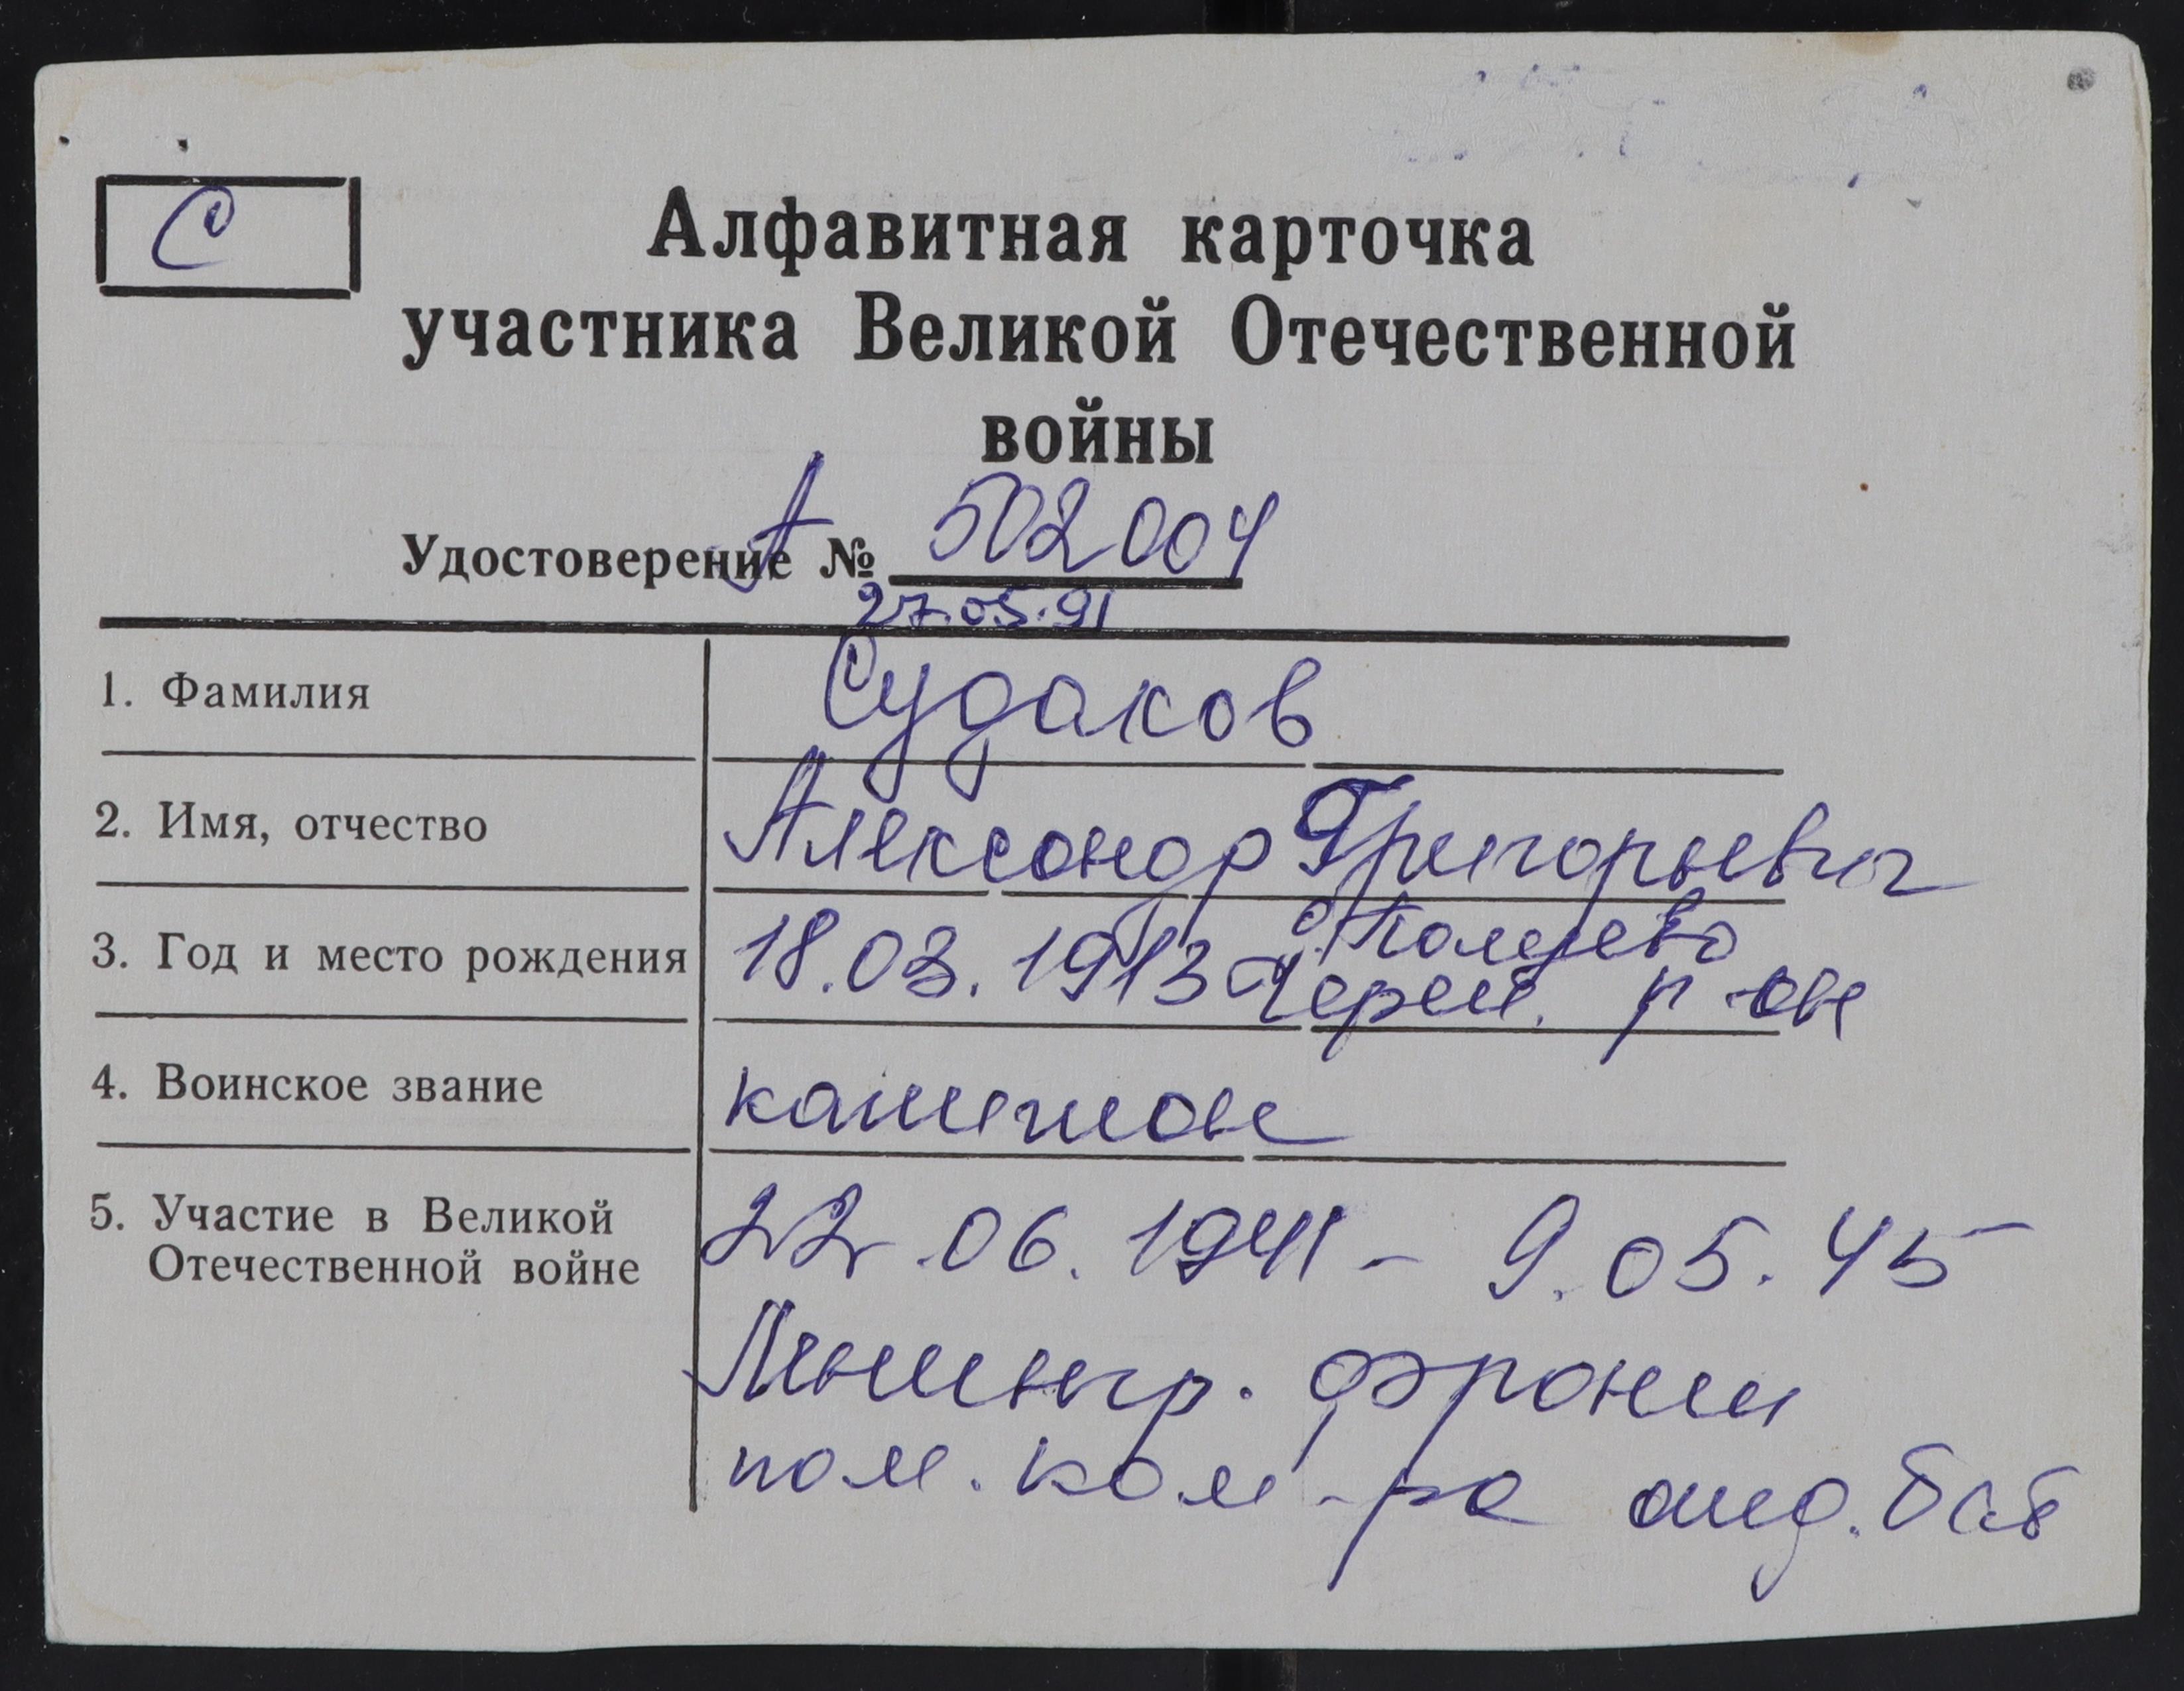 С
Алфавитная карточка
участника Великой Отечественной
войны
Удостоверение А № 502004
27.05.91
1. Фамилия Судаков
2. Имя, отчество Александр Григорьевич
3. Год и место рождения 18.03.1913 д.
Черем. р-он
4. Воинское звание капитан
5. Участие в Великой
Отечественной войне
22.06.1941 - 9.05.45
Ленингр. фронт
пом. ком-ра отд. бат